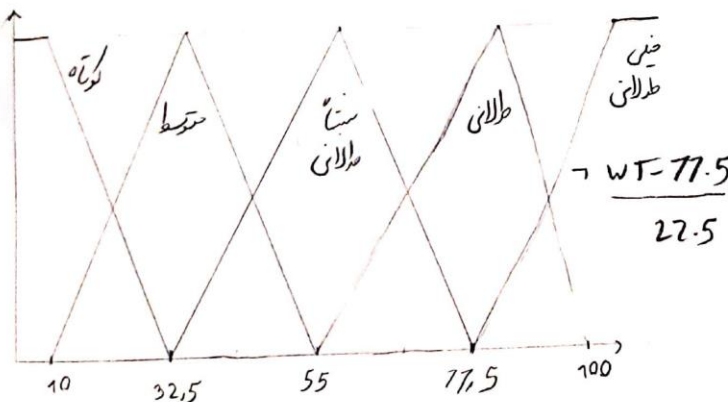 کوتاه
متوسط
نسبتاه
طولانی
طولانی
خیلی
طولانی
WT-77.5
22.5
10
32,5
55
77,5
100